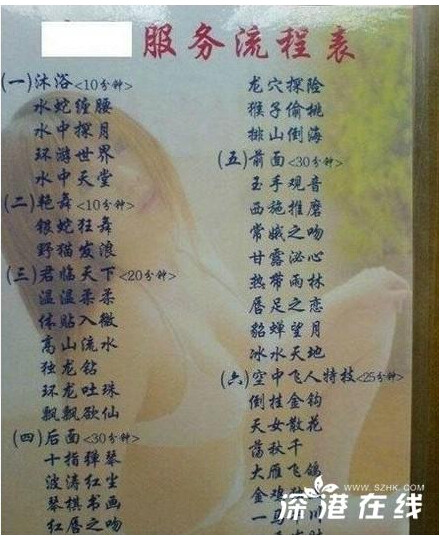 服务流程表
(一)沐浴<10分钟>
水蛇缠腰
水中探月
环游世界
水中天堂
(二)艳舞<10分钟>
银蛇狂舞
野猫发浪
(三)君临天下<20分钟>
温温柔柔
体贴入微
高山流水
独龙钻
环龙吐珠
飘飘欲仙
(四)后面<30分钟>
十指弹琴
波涛红尘
琴棋书画
红唇之吻
龙穴探险
猴子偷桃
排山倒海
(五)前面<30分钟>
玉手观音
西施推磨
常娥之吻
甘露泌心
热带雨林
唇足之恋
貂蝉望月
冰水天地
(六)空中飞人特技<25分钟>
倒挂金钩
天女散花
荡秋千
大雁飞鸽
金鸡
一马川
深港在线
WWW.SZHK.COM